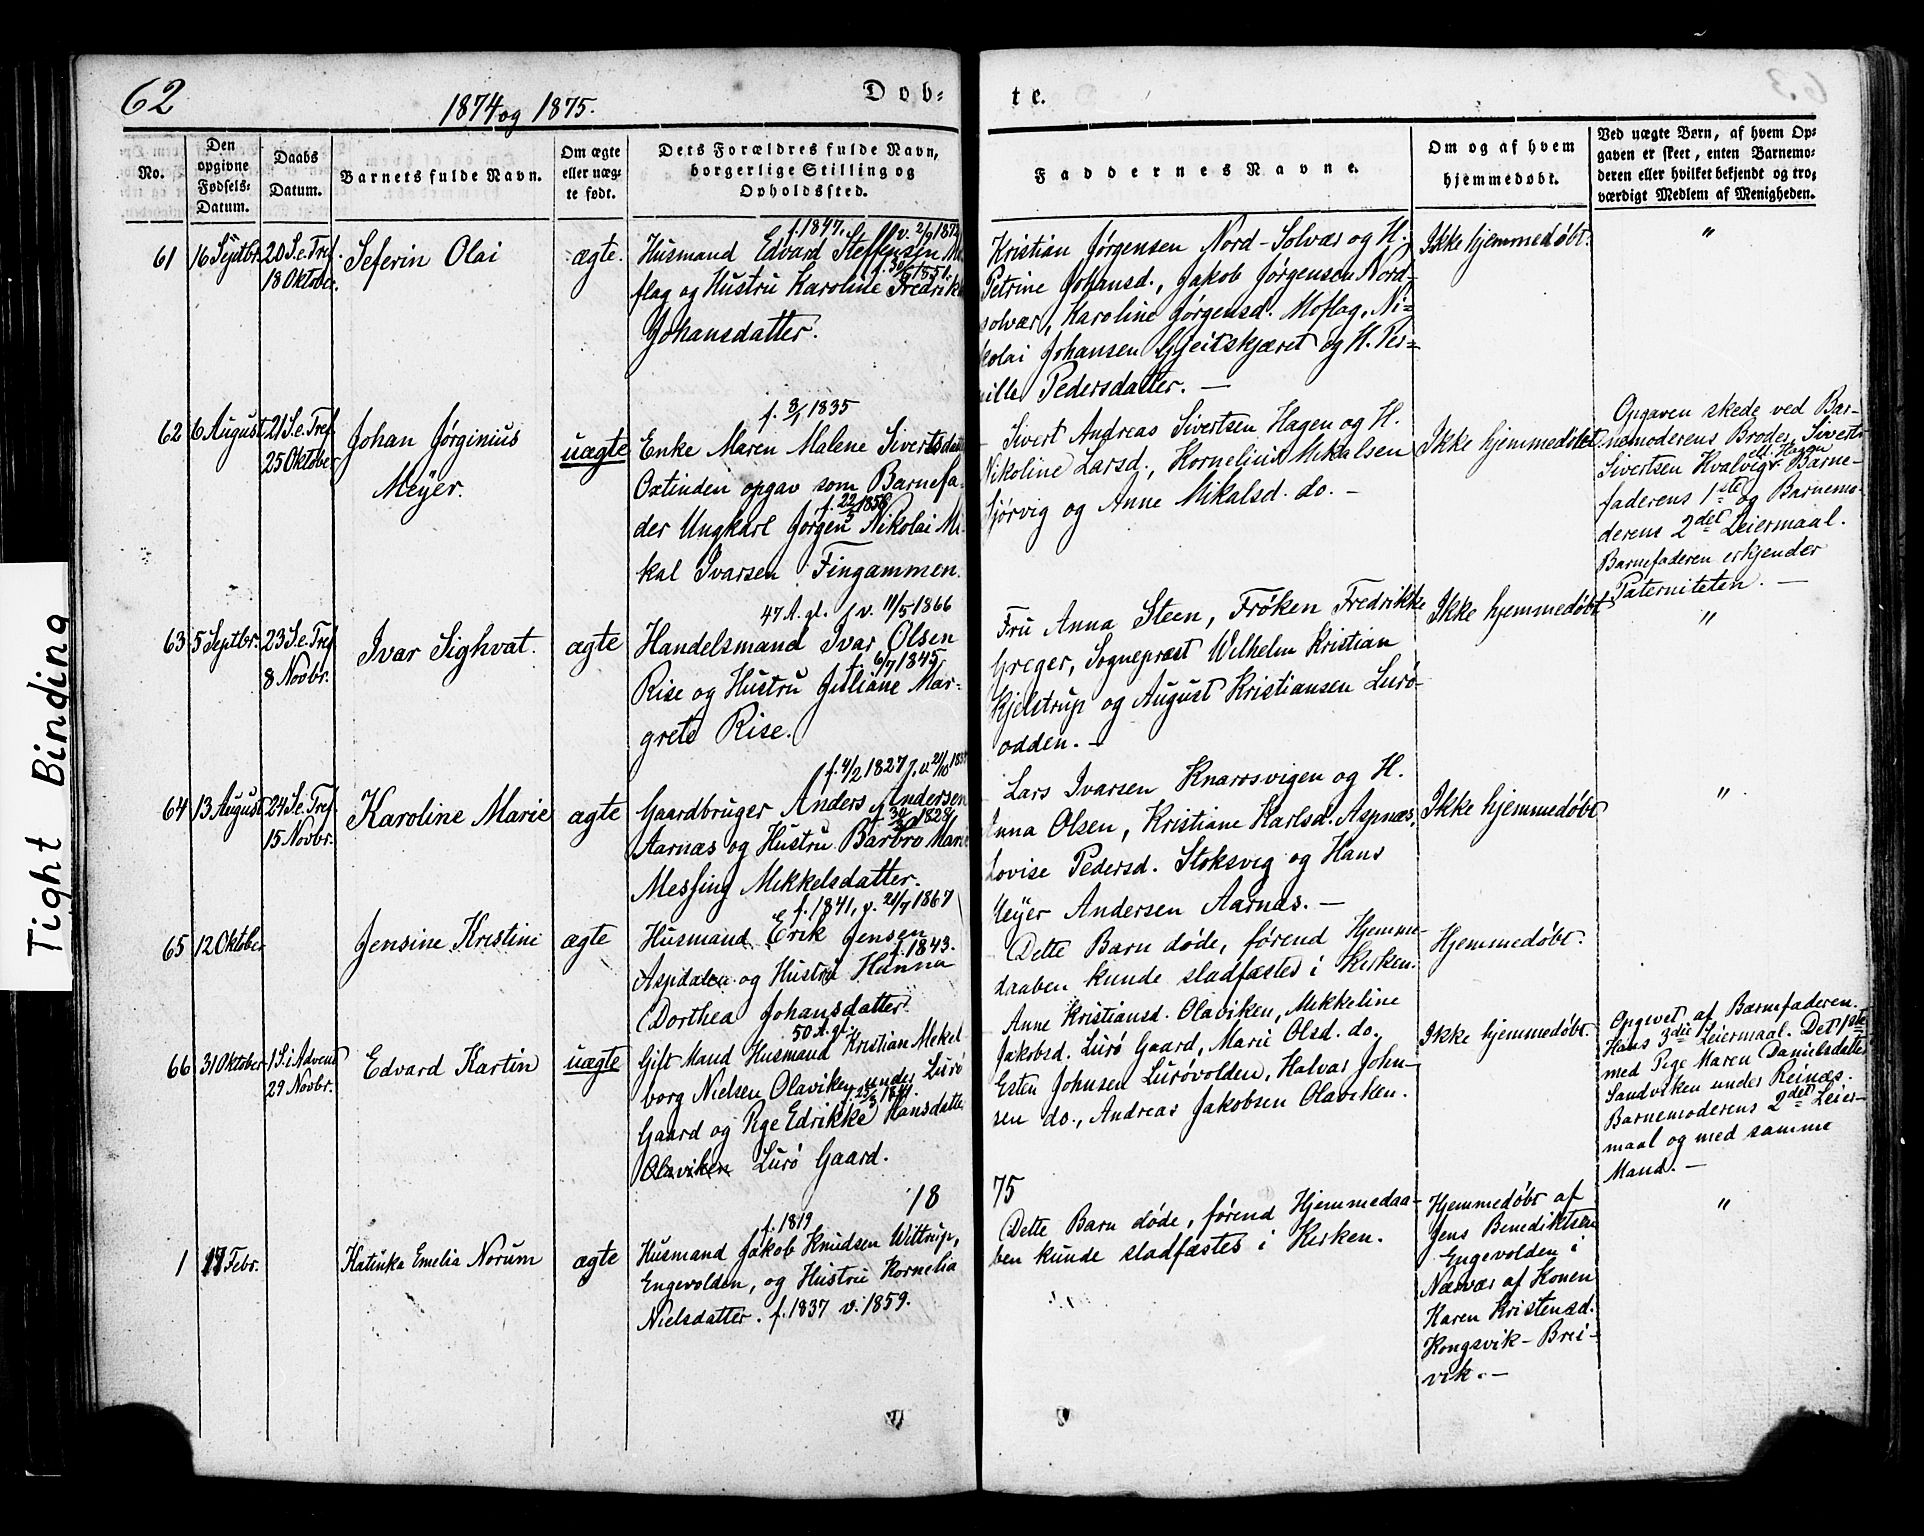 62
1874 og 1875.
Døb-
te.
No.
Den
opgivne
Fødsels-
Datum.
Daabs
Datum.
Barnets fulde Navn.
Om ægte
eller uæg-
te født.
Dets Forældres fulde Navn,
borgerlige Stilling og
Opholdssted.
Faddernes Navne.
Om og af hvem
hjemmedøbt.
Ved uægte Børn, af hvem Op-
gaven er skeet, enten Barnemo-
deren eller hvilket bekjendt og tro-
værdigt Medlem af Menigheden.
61
16 Septbr.
20 S. e. Tref.
18 Oktober.
Seferin Olai
ægte.
f. 1847,
Husmand Edvard Steffensen
flag og Hustru Karoline Fredrikk
Johansdatter.
Kristian Jørgensen Nord-Solvær og H.
Petrine Johansd., Jakob Jørgensen Nord-
solvær, Karoline Jørgensd. Moflag, Ni-
kolai Johansen Gjeitskjæret og H. Per-
nille Pedersdatter. —
Ikke hjemmedøbt.
"
62
6 August
21 S. e. Tref.
25 Oktober
Johan Jørginius
Meÿer.
uægte
f. 8/1 1835
Enke Maren Malene Sivertsdatt
Oxtinden opgav som Barnefa-
f. 22/5 1858
der Ungkarl Jørgen Nikolai Mi
kal Ivarsen Fingammen.
Sivert Andreas Sivertsen Hagen og H.
Nikoline Larsd., Kornelius Mikalsen
Sjørvig og Anne Mikalsd. do. —
Ikke hjemmedøbt.
Opgaven skede ved Bar-
nemoderens Broder Siverts
Sivertsen Kvalvig ell. Hagen Barne-
faderens 1ste og Barnemo-
derens 2det Leiermaal.
Barnefaderen erkjender
Paterniteten. —
63
5 Septbr.
23 S. e. Tref.
8 Novbr.
Ivar Sighvat.
ægte
47 A. gl. v. 11/5 1866
Handelsmand Ivar Olsen
f. 6/7 1845
Rise og Hustru Juliane Mar-
grete Rise.
Fru Anna Steen, Frøken Fredrikke
Greger, Sognepræst Wilhelm Kristian
Kjelstrup og August Kristiansen Lurø-
odden. —
Ikke hjemmedøbt
"
64
13 August
24 S. e. Tref.
15 Novbr.
Karoline Marie
ægte
f. 4/2 1827
Gaardbruger Anders Andersen
1828
Aarnæs og Hustru Barbro Mar
Messing Mikkelsdatter.
Lars Ivarsen Knarrsvigen og H.
Anna Olsen, Kristiane Karlsd. Aspnæs,
Lovise Pedersd. Stoksvig og Hans
Meÿer Andersen Aarnæs. —
Ikke hjemmedøbt
"
65
12 Oktober
Jensine Kristine
ægte
f. 1841, v. 21/7 1867
Husmand Erik Jensen
f. 1843.
Aspdalen og Hustru Hanna
Dorthea Johansdatter.
Dette Barn døde, førend Hjemme-
daaben kunde stadfæstes i Kirken.
Hjemmedøbt.
66
31 Oktober
1 S. i Advent
29 Novbr.
Edvard Kartin
uægte
50 A. gl.
Gift Mand Husmand Kristian Mekel
borg Nielsen Olaviken under Lurø
Gaard og Pige Edrikke Hansdatte
Olaviken Lurø Gaard.
Anne Kristiansd. Olaviken, Mikkeline
Jakobsd. Lurø Gaard, Marie Olsd. do.
Esten Johnsen Lurøvolden, Halvar John-
sen do., Andreas Jakobsen Olaviken.
Ikke hjemmedøbt.
Opgivet af Barnefaderen.
Hans 3die Leiermaal. Det 1ste
med Pige Maren Danielsdatter
Sandviken under Reinæs.
Barnemoderens 2det Leier-
maal og med samme
Mand. —
18
75
1
17 Febr.
Katinka Emelia Norum
ægte
f. 1819
Husmand Jakob Knudsen Wittrup,
Engevolden, og Hustru Kornelia
Nielsdatter. f. 1837 v. 1859.
Dette Barn døde, førend Hjemmedaa-
ben kunde stadfæstes i Kirken.
Hjemmedøbt af
Jens Benediktsen
Engevolden i
Nærvær af Konen
Karen Kristensd.
Kongsvik-Brei-
vik. —
"
Tight Binding